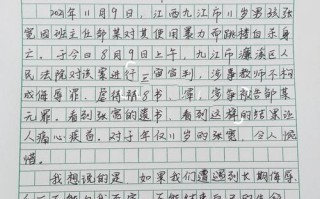 2021年11月9日，江西九江市11岁男孩张
宽因班主任邹某对其使用暴力而跳楼自杀身
亡。于今日8月9日上午，九江市濂溪区人
民法院对该案进行三审宣判，涉事教师不构
成侮辱罪、虐待
元罪。看到张宽的遗书，看到这样的结果让
人痛心疾首。对于年仅11岁的张宽，令人惋
惜。
我想说的是，如果我们遭遇到长期侮辱、